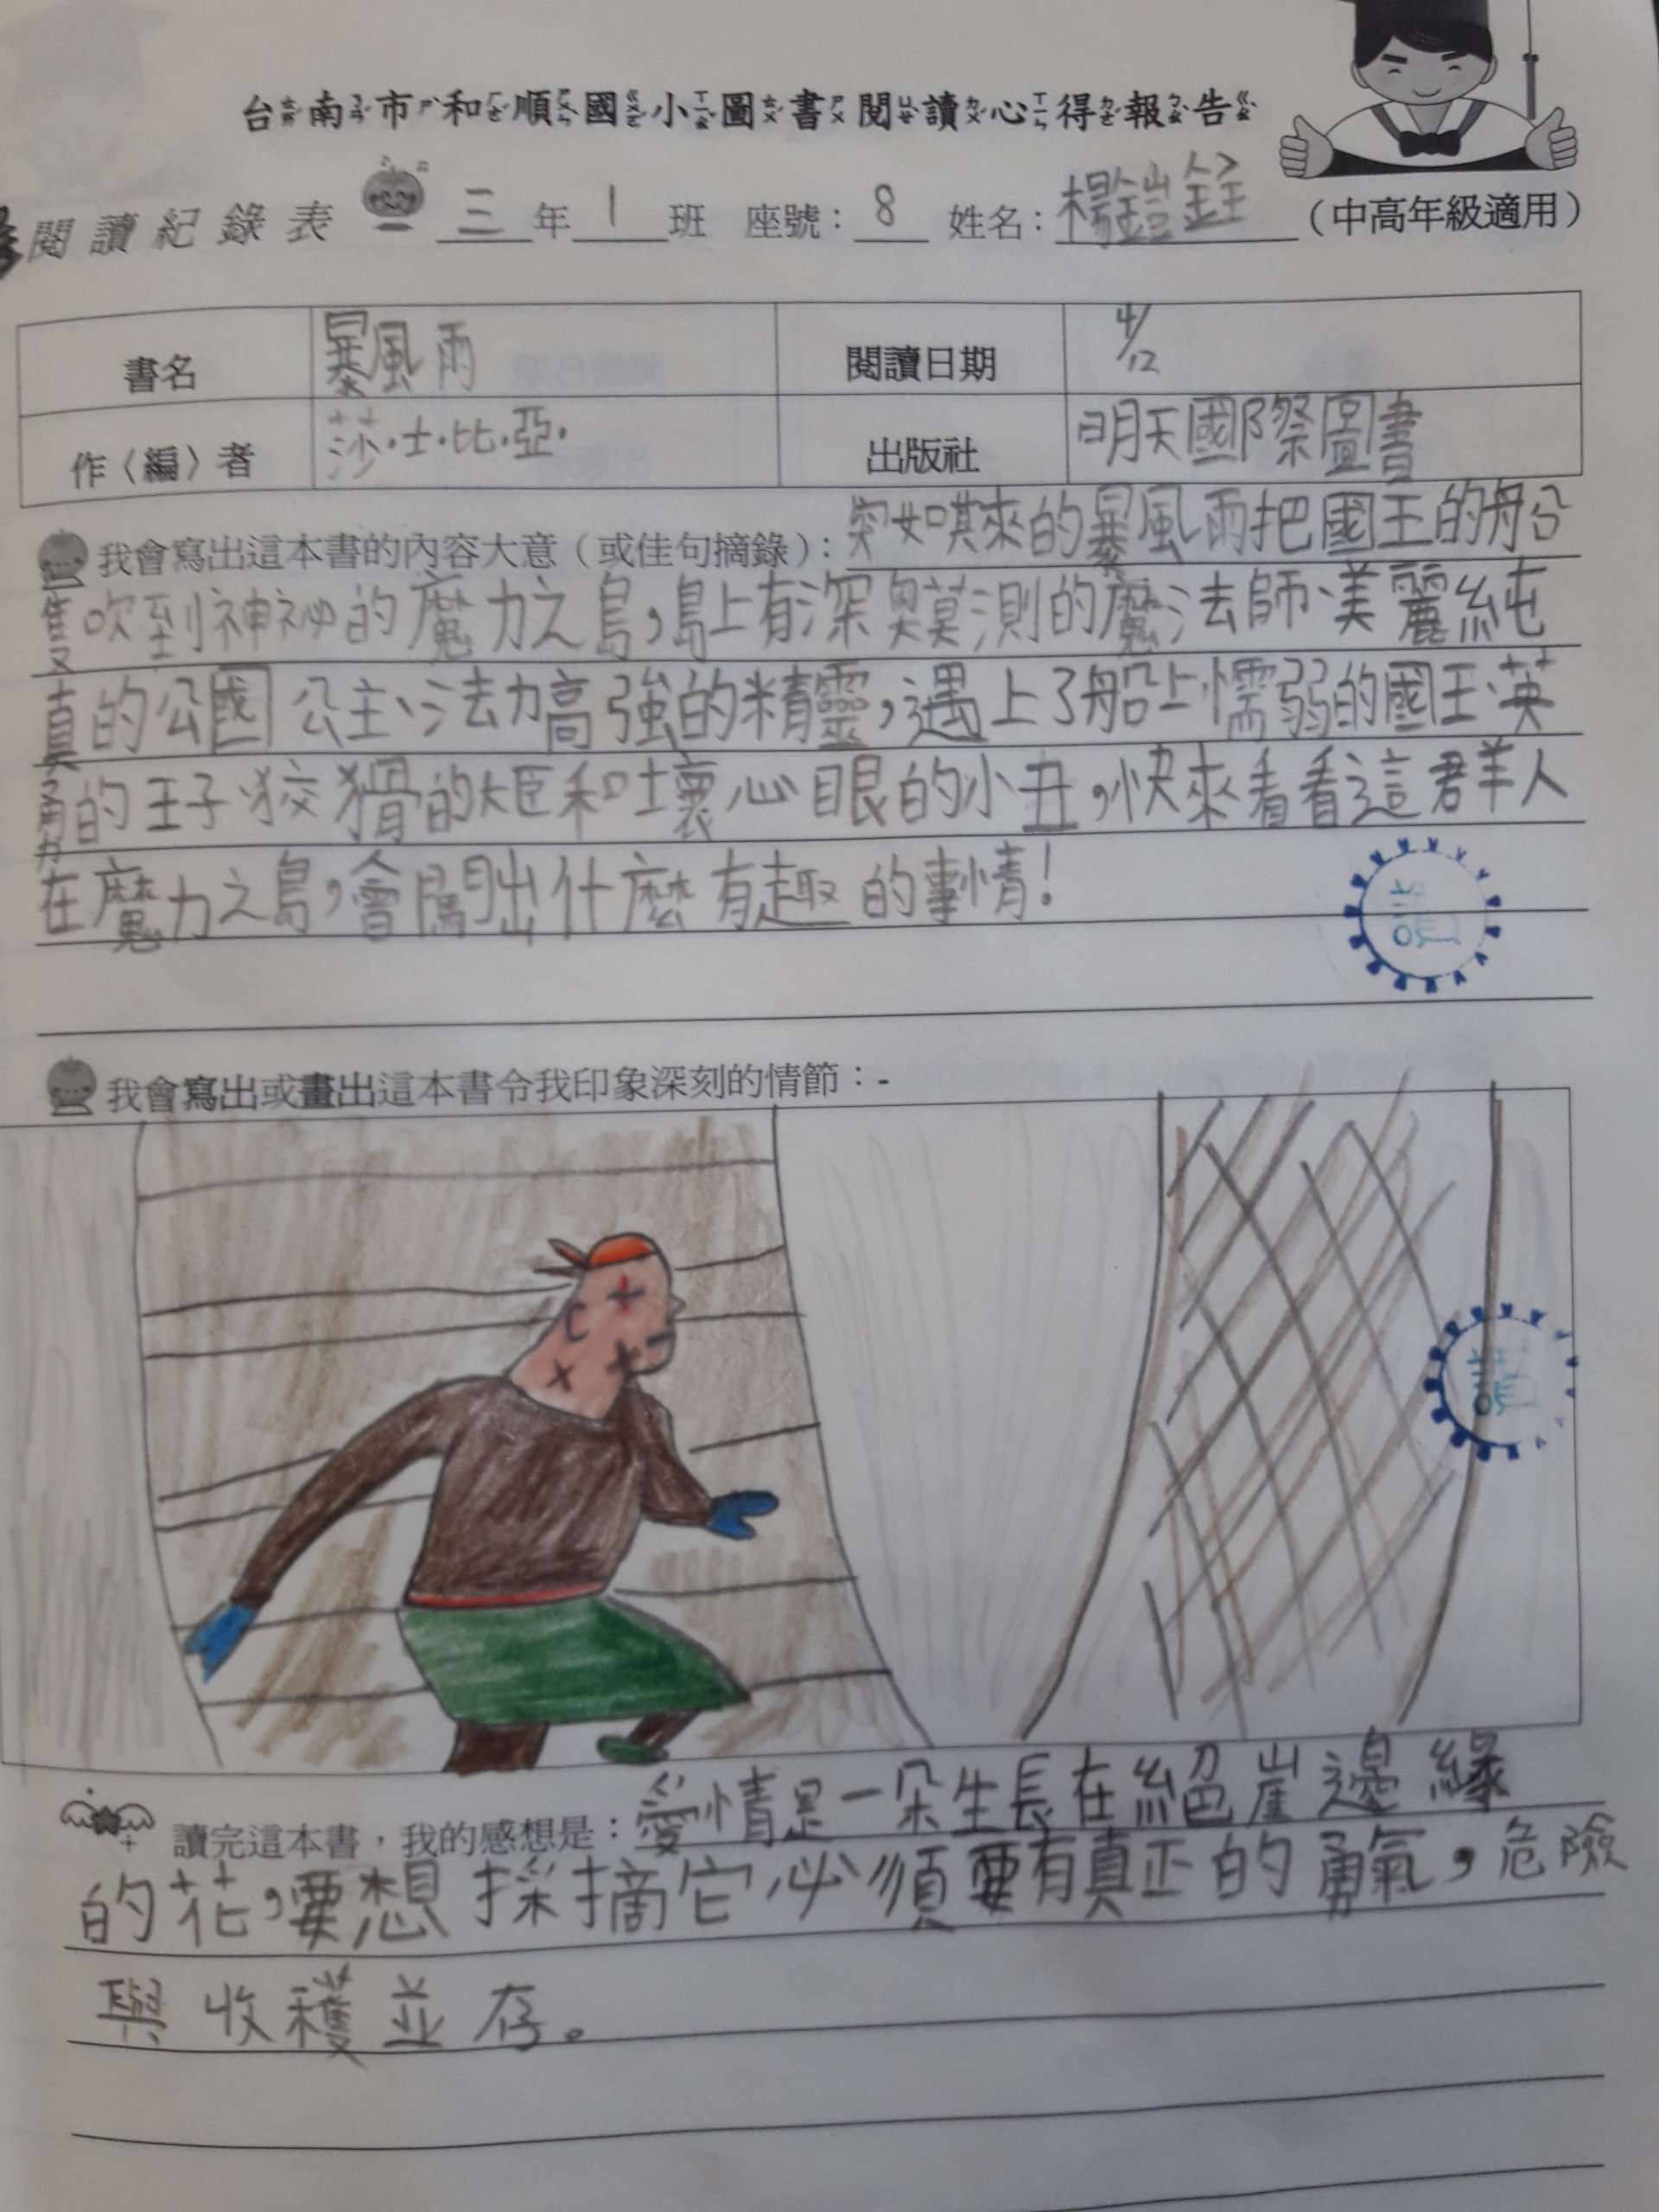 台南市和順國小圖書閱讀心得報告
閱讀紀錄表 三年1班 座號：8 姓名：楊鎧銓 （中高年級適用）
書名 暴風雨 閱讀日期 4/12
作〈編〉者 莎·士·比·亞· 出版社 明天國際圖書
我會寫出這本書的內容大意（或佳句摘錄）：突如唭來的暴風雨把國王的船
隻吹到神祕的魔力之島，島上有深奧莫測的魔法師、美麗純
真的公國公主、法力高強的精靈，遇上了船上懦弱的國王、英
勇的王子、狡猾的大臣和壞心眼的小丑，快來看看這群人
在魔力之島，會闖出什麼有趣的事情！
讀
我會寫出或畫出這本書令我印象深刻的情節：-
讀
讀完這本書，我的感想是：愛情是一朵生長在絕崖邊緣
的花，要想採摘它必須要有真正的勇氣，危險
與收穫並存。